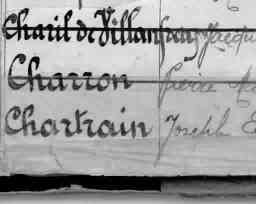 Charil de Villanfray Jacqu
Charron
Chartrain Joseph E